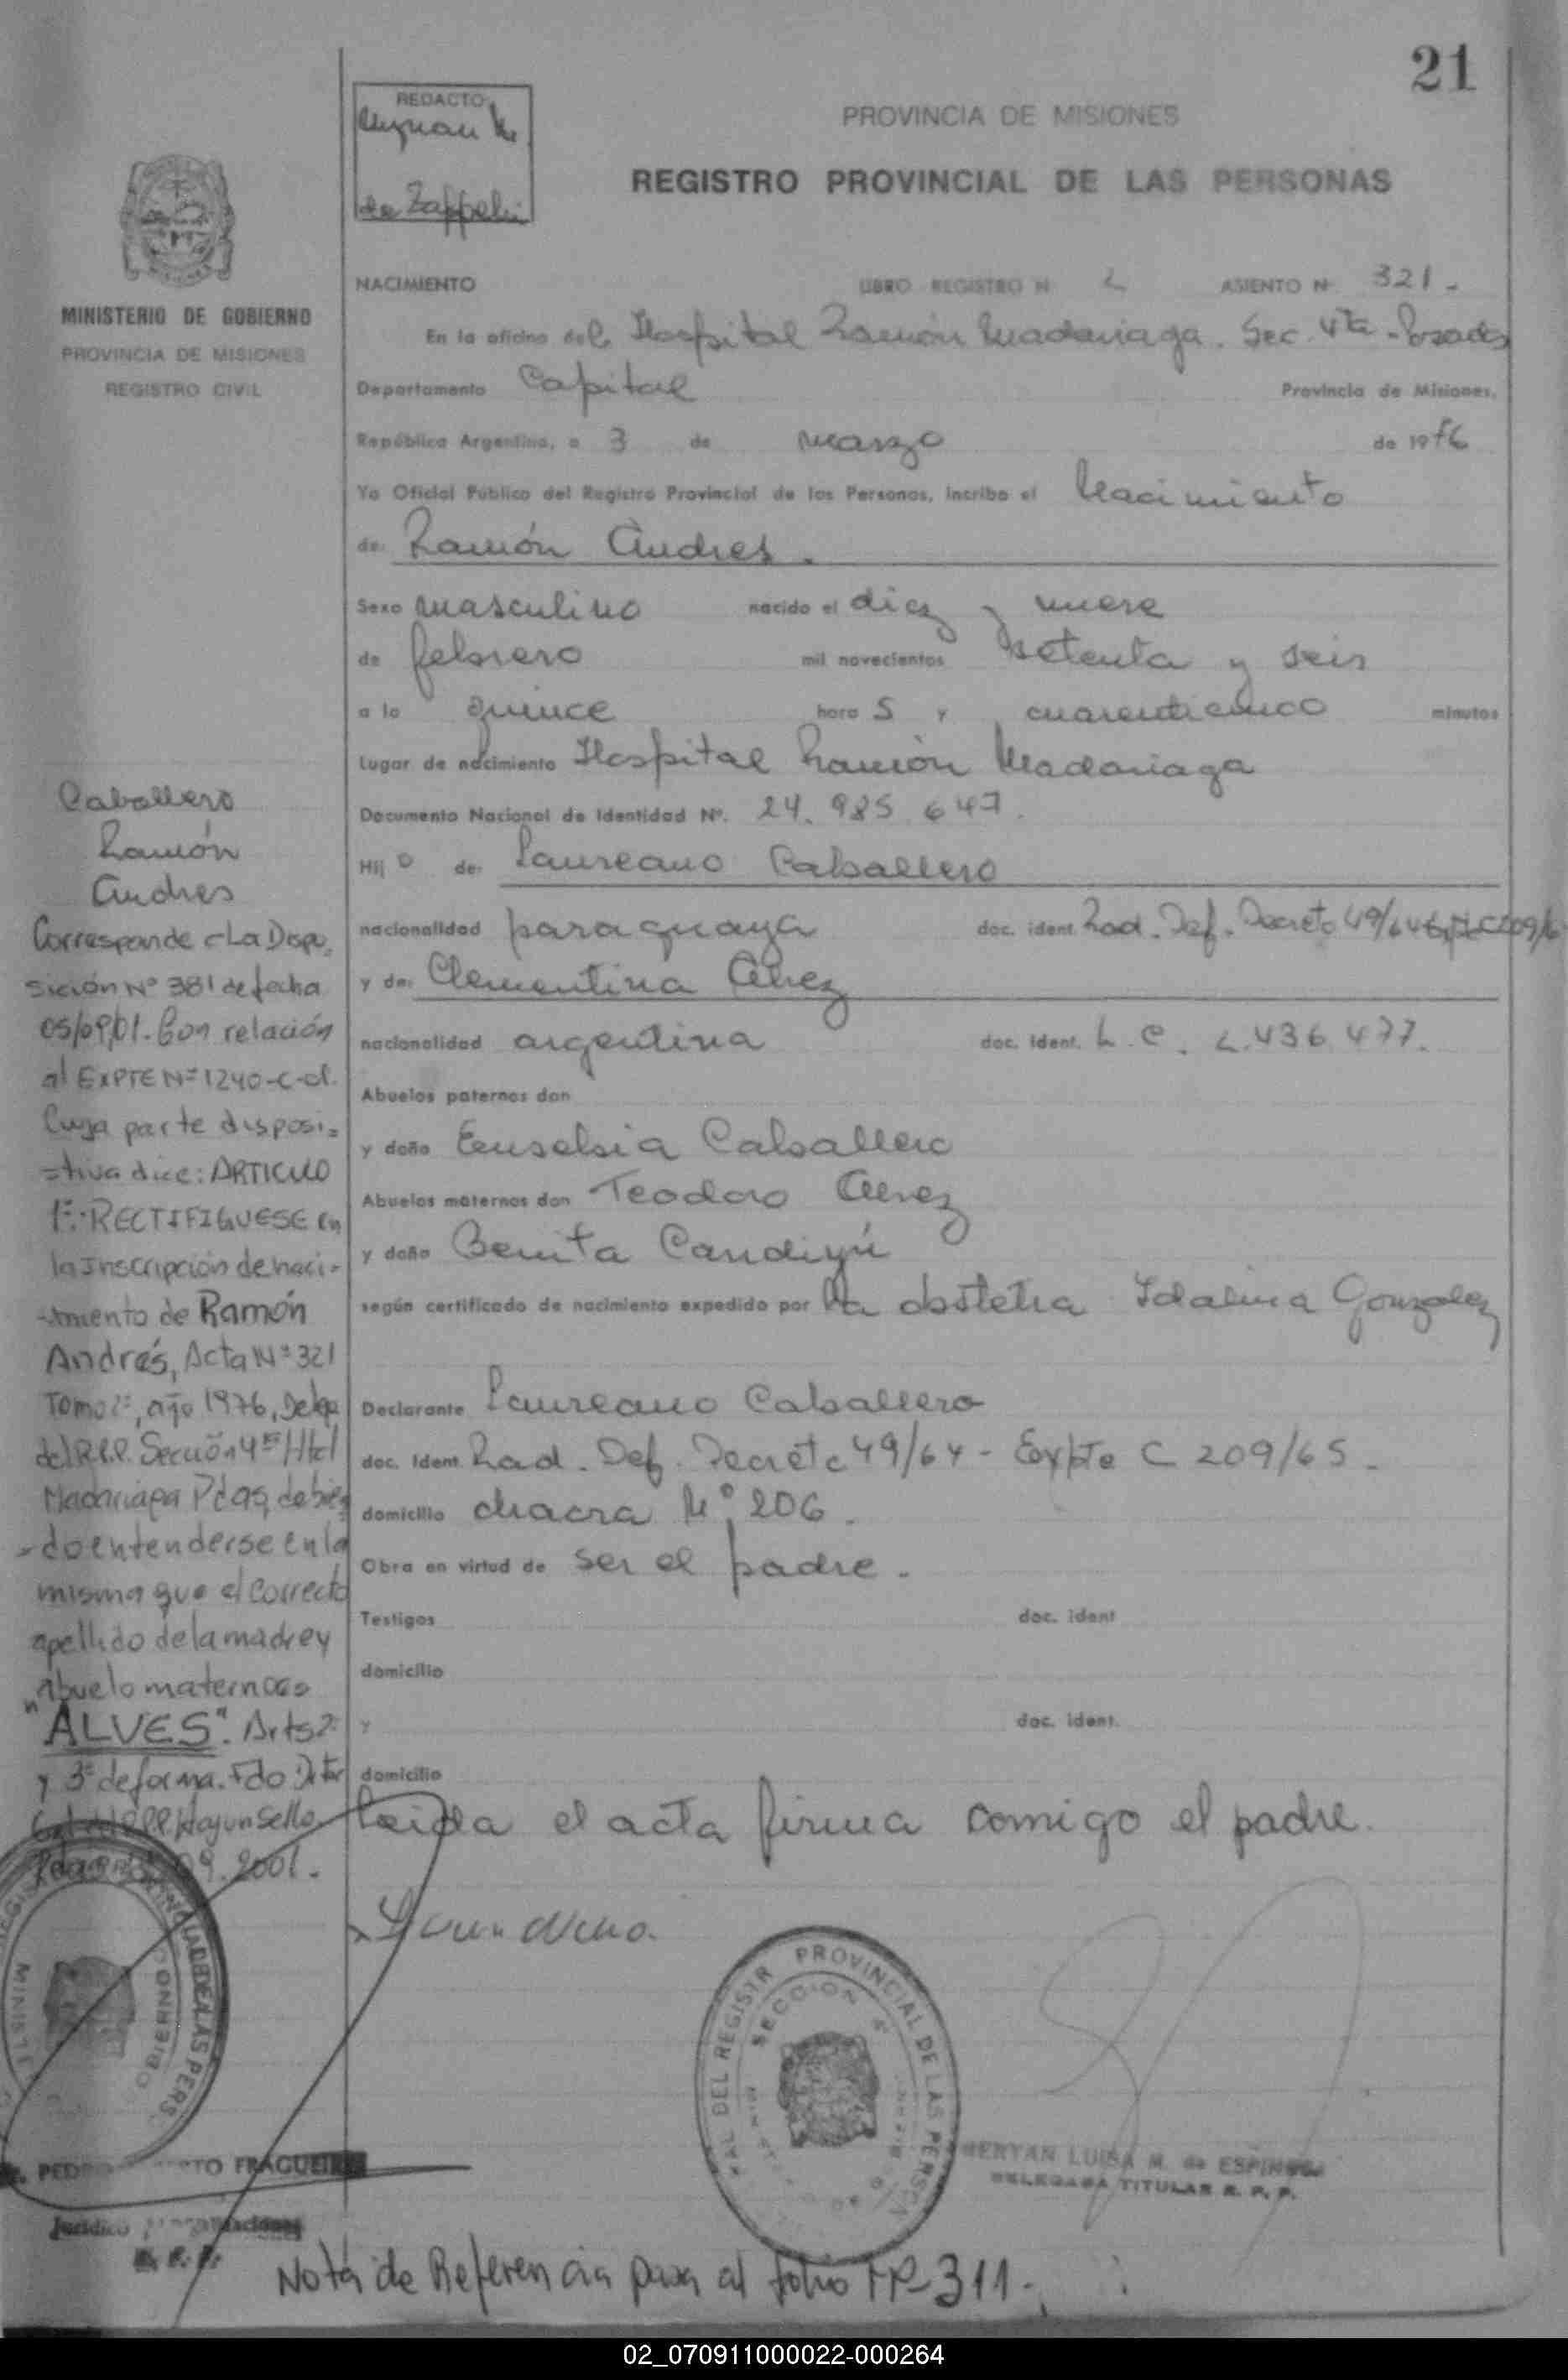 21
REDACTO:
de Zappelli
PROVINCIA DE MISIONES
REGISTRO PROVINCIAL DE LAS PERSONAS
MINISTERIO DE GOBIERNO
PROVINCIA DE MISIONES
REGISTRO CIVIL
NACIMIENTO LIBRO REGISTRO N 2 ASIENTO N 321 -
En la oficina del Hospital Ramón Madariaga. Sec. 4ta - Posadas
Departamento Capital Provincia de Misiones,
República Argentina, a 3 de marzo de 1976
Yo Oficial Público del Registro Provincial de las Personas, Inscribo el Nacimiento
de: Ramón Andres.
Sexo masculino nacido el diez y nueve
de febrero mil novecientos setenta y seis
a la quince hora s y cuarenticinco minutos
Lugar de nacimiento Hospital Ramón Madariaga
Documento Nacional de Identidad Nº. 24.985.647.
Hij o de: Laureano Caballero
nacionalidad paraguaya doc. ident. Rad. Def. Decreto 49/64
y de: Clementina Alvez
nacionalidad argentina doc. ident. L.C. 2.436.477.
Abuelos paternos don
y doña Eusebia Caballero
Abuelos maternos don Teodoro Alvez
y doña Benita Candiyú
según certificado de nacimiento expedido por la obstetra Idalina Gonzalez
Declarante Laureano Caballero
doc. Ident. Rad. Def. Decreto 49/64 - Expte C 209/65 -
domicilio chacra Nº 206.
Obra en virtud de ser el padre.
Testigos doc. ident
domicilio
y doc. ident.
domicilio
leida el acta firma comigo el padre.
Caballero
Ramón
Andres
Corresponde a La Dispo-
sición Nº 381 de fecha
05/09/01. Con relación
al EXPTE Nº 1240-C-01.
Cuya parte disposi=
=tiva dice: ARTICULO
1º: RECTIFIQUESE en
la Inscripción de naci-
-miento de Ramón
Andrés, Acta Nº 321
Tomo 2º, año 1976, Deleg
del R.P.P. Sección 4ª Htal
Madariaga Pdas, debien
-do entenderse en la
misma que el correcto
apellido de la madre y
abuelo materno es
"ALVES". Arts 2º
y 3º de forma. Fdo Dtor
Gral del RPP. Hay un sello.
09.2001.-
REGISTRO PROVINCIAL DE LAS PERS
MINISTE GOBIERNO
PEDRO FRAGUEIRO
Jurídico
R. P. P.
DEL REGISTR PROVINCIAL DE LAS PERSONAS
SECCION 4ª
MERYAN LUISA M. de ESPINOSA
DELEGADA TITULAR R. P. P.
Nota de Referencia pasa al folio FP-311.
02_070911000022-000264